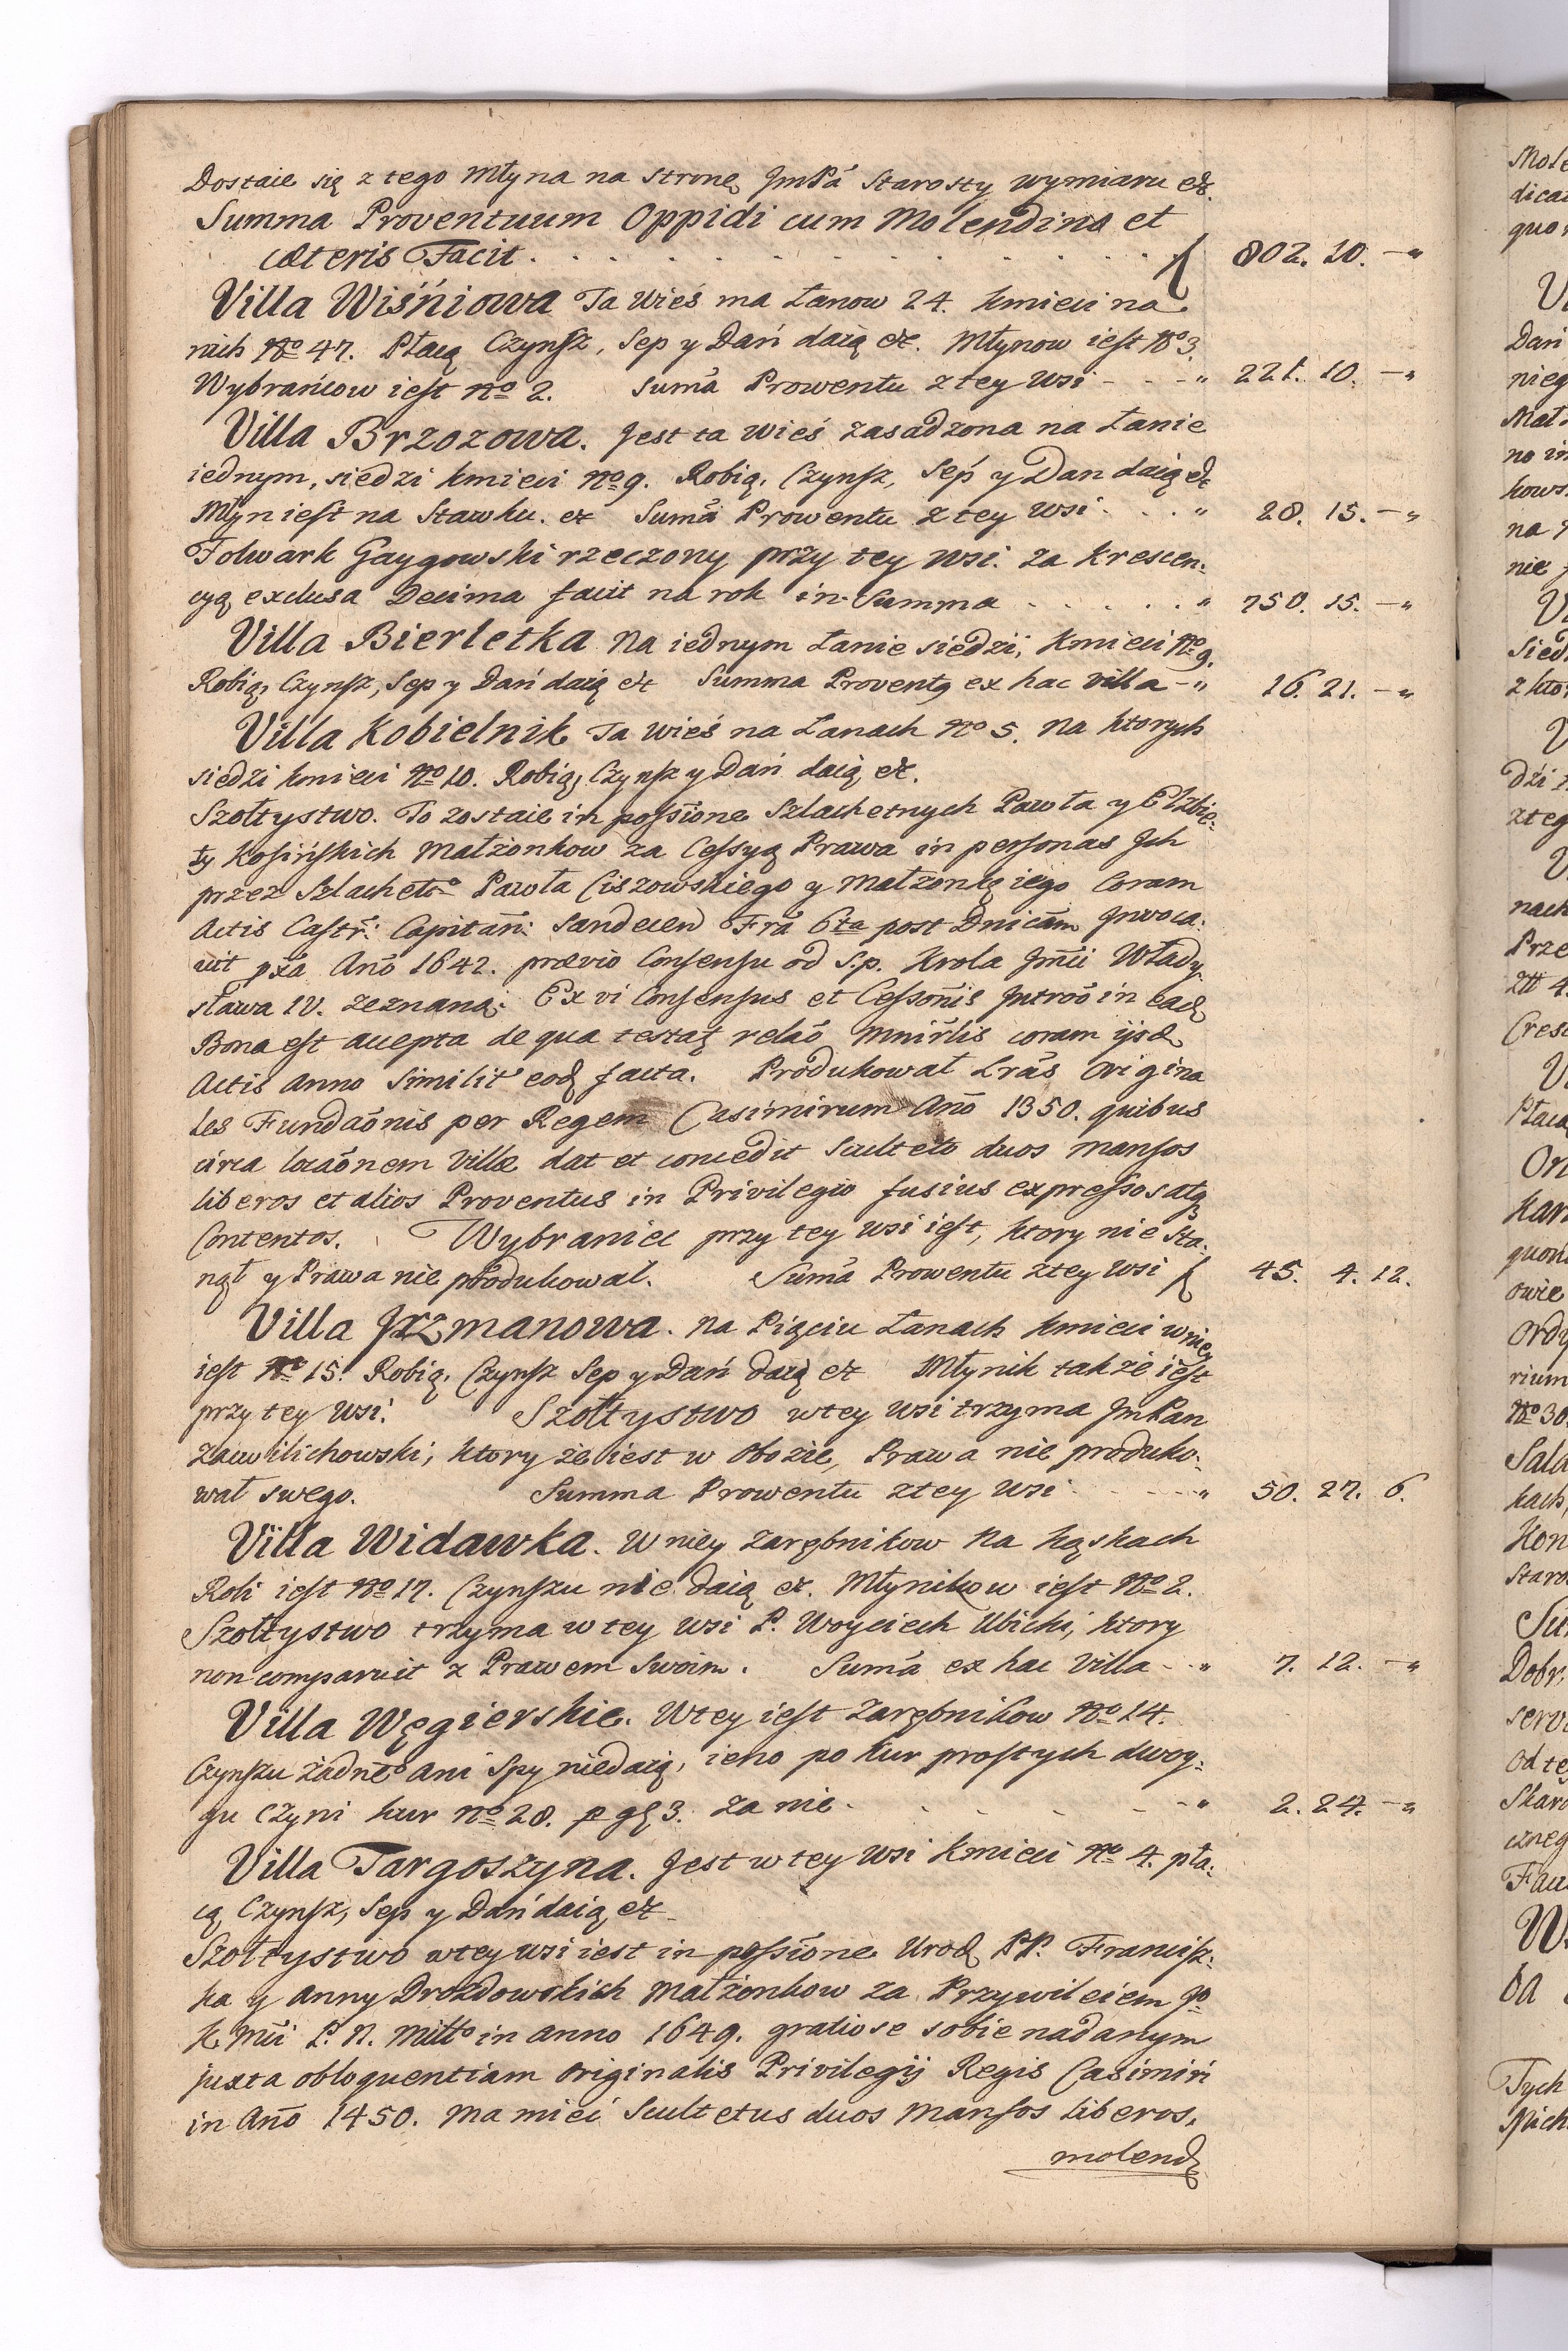 Dostaie się z tego Młyna na stronę JmPã Starosty wymiaru et.
Summa Proventuum Oppidi cum Molendino et
cæteris Facit . . . . . . . . . . . . ƒ 802. 10. —„
Villa Wiśniowa Ta Wieś ma Łanow 24. kmieci na
nich No 47. Płacą Czynsz, Sep y Dań daią et. Młynow iest No 3.
Wybrańcow iest No 2. Sum̃a Prowentu z tey Wsi - - - „ 221. 10. —„
Villa Brzozowa. Jest ta wieś zasadzona na Łanie
iednym, siedzi kmieci No 9. Robią, Czynsz, Sep y Dan daią et
Młyn iest na Stawku. et Sum̃a Prowentu z tey wsi . . . „ 28. 15. —„
Folwark Gaygowski rzeczony przy tey wsi. za krescen:
cyą exclusa Decima facit na rok in Summa . . . . . „ 750. 15. —„
Villa Bierletka Na iednym Łanie siedzi, Kmieci No 9.
Robią, Czynsz, Sep y Dań daią et Summa Proventq ex hac villa -„ 16. 21. —„
Villa Kobielnik Ta Wieś na Łanach No 5. Na ktorych
siedzi kmieci No 10. Robią, Czynsz y Dań daią et.
Szołtystwo. To zostaie in possione Szlachetnych Pawła y Elzbie:
ty Kosińskich Małzonkow za Cessyą Prawa in personas Jch
przez Szlacheto Pawła Ciszowskiego y Małzonkę iego Coram
Actis Castr̃: Capitañ: Sandecen Frã 6ta post Dnicãm Jnvoca:
vit pxã Anõ 1642. prævio Consensu od S.p. Krola Jm̃ci Włady
sława IV. zeznaną: Ex vi Consensus et Cessonis Jntroõ in ead
Bona est accepta de qua testat relaõ Mnir̃lis coram ijsd
Actis Anno Similit eod facta. Produkował Lrãs Origina
les Fundaõnis per Regem Casimirum Anõ 1350. quibus
circa locaõnem Villæ dat et concedit Sculteto duos mansos
liberos et alios Proventus in Privilegio fusius expressos atq
Contentos. Wybraniec przy tey wsi iest, ktory nie Sta:
nął y Prawa nie produkował. Sum̃a Prowentu z tey wsi ƒ 45. 4. 12.
Villa Jxzmanowa. Na Pięciu Łanach kmieci w niey
iest No 15. Robią, Czynsz Sep y Dań daią et Młynik także iest
przy tey Wsi. Szołtystwo w tey wsi trzyma JmPan
Zawilichowski, ktory że iest w Obozie, Prawa nie produko:
wał swego. Summa Prowentu z tey Wsi - - - - „ 50. 27. 6.
Villa Widawka. W niey Zarębnikow Na kąskach
Roli iest No 17. Czynszu nie daią et. Młynikow iest No 2.
Szołtystwo trzyma w tey wsi P. Woyciech Ubicki, ktory
non comparuit z Prawem Swoim. Sum̃a ex hac Villa - - „ 7. 12. —„
Villa Węgierskie. W tey iest Zarębnikow No 14.
Czynszu żadneo ani Spy nie daią, ieno po kur prostych dwoy:
gu czyni kur No 28. p g 3. za nie . . . . . - „ 2. 24. —„
Villa Targoszyna. Jest w tey wsi Kmieci No 4. pła:
cą, Czynsz, Sep y Dań daią, et
Szołtystwo w tey wsi iest in possione Urod PP. Francisz:
ka y Anny Drozdowskich Małżonkow za Przywileiem Jo
K Mci P. N. Miłło in Anno 1649. gratiose sobie nadanym
juxta obloquentiam Originalis Privilegij Regis Casimiri
in Anõ 1450. Ma mieć Scultetus duos Mansos liberos,
molend